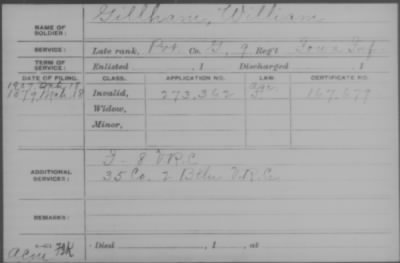 Gillham, William
NAME OF SOLDIER:
SERVICE: Late rank, Pvt. Co. G, 9 Reg't Iowa Inf.
TERM OF SERVICE: Enlisted , 1 Discharged , 1
DATE OF FILING. CLASS. APPLICATION NO. LAW. CERTIFICATE NO.
1879 Mch. 18 Invalid, 273,362 167,679
Widow,
Minor,
G - 8 V.R.C.
ADDITIONAL SERVICES: 35 Co. 2 Batn V.R.C.
REMARKS:
Died , 1 , at